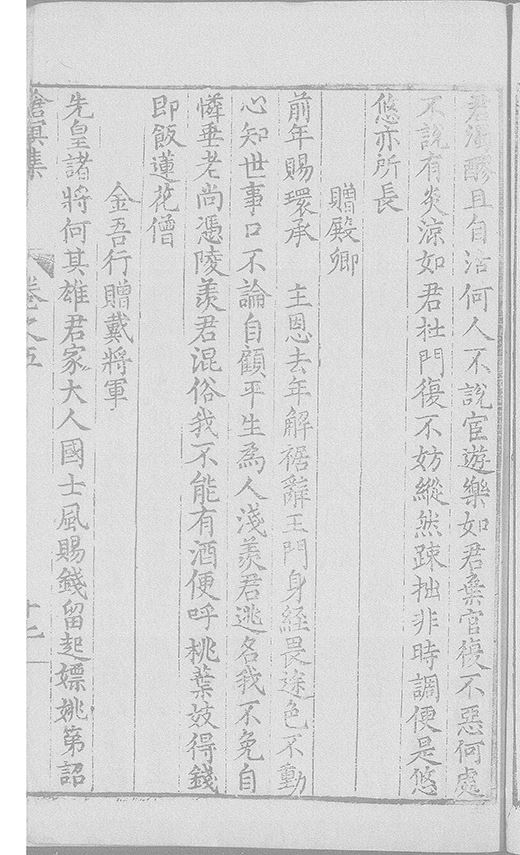 君濁醪且自沽何人不說宦遊樂如君棄官復不惡何處
不說有炎涼如君杜門復不妨縱然疎拙非時調便是悠
悠亦所長
贈殿卿
前年賜環承　主恩去年解裾辭王門身經畏途色不動
心知世事口不論自顧平生為人淺羨君逃名我不免自
憐垂老尚憑陵羨君混俗我不能有酒便呼桃葉妓得錢
即飯蓮花僧
金吾行贈戴將軍
先皇諸將何其雄君家大人國士風賜錢留起嫖姚第詔
滄溟集
卷之五
十七